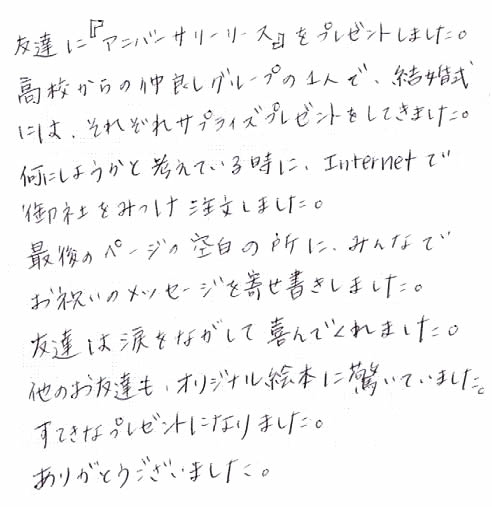 友達に『アニバーサリーリース』をプレゼントしました。
高校からの仲良しグループの1人で、結婚式
には、それぞれサプライズプレゼントをしてきました。
何にしようかと考えている時に、Internetで
御社をみつけ注文しました。
最後のページの空白の所に、みんなで
お祝いのメッセージを寄せ書きしました。
友達は涙をながして喜んでくれました。
他のお友達も、オリジナル絵本に驚いていました。
すてきなプレゼントになりました。
ありがとうございました。